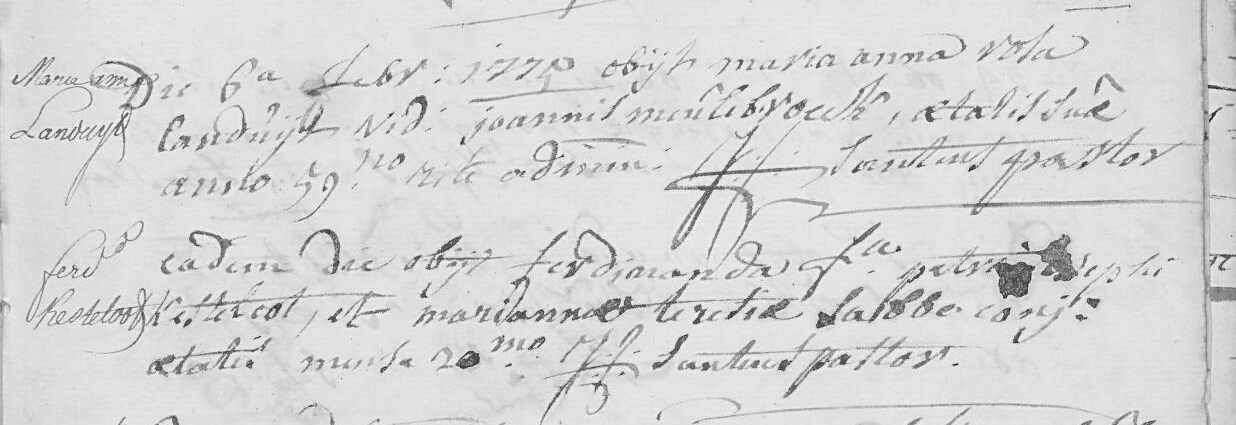 Maria anna
Landuijt
Die 6a febr: 1775 obijt maria anna rosa
landuijt vid: joannis meulebroeck, ætatis suæ
anno 59.no rite admini: J:f: santens pastor
ferd.a
Kesteloot
eadem die obijt ferdinanda f.a petri josephi
Kesteloot, et mariannæ teresiæ Labbe conj:
ætatis mense 20.mo J:f: santens pastor.